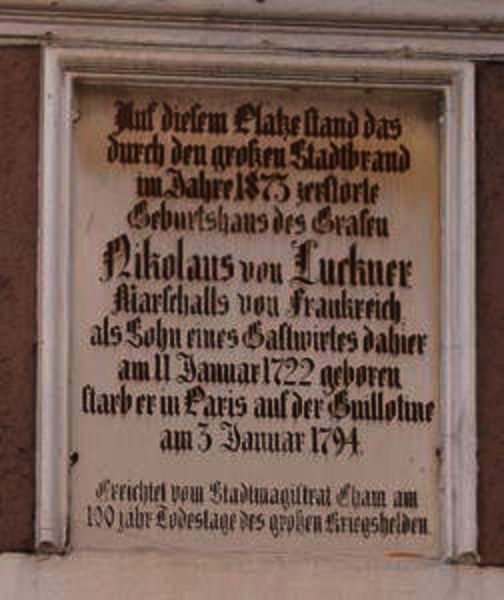 Auf diesem Platze stand das
durch den großen Stadtbrand
im Jahre 1873 zerstörte
Geburtshaus des Grafen
Nikolaus von Luckner
Marschalls von Frankreich
als Sohn eines Gastwirtes dahier
am 11 Januar 1722 geboren
starb er in Paris auf der Guillotine
am 3 Januar 1794
Errichtet vom Stadtmagistrat Cham am
100 jähr Todestage des großen Kriegshelden.